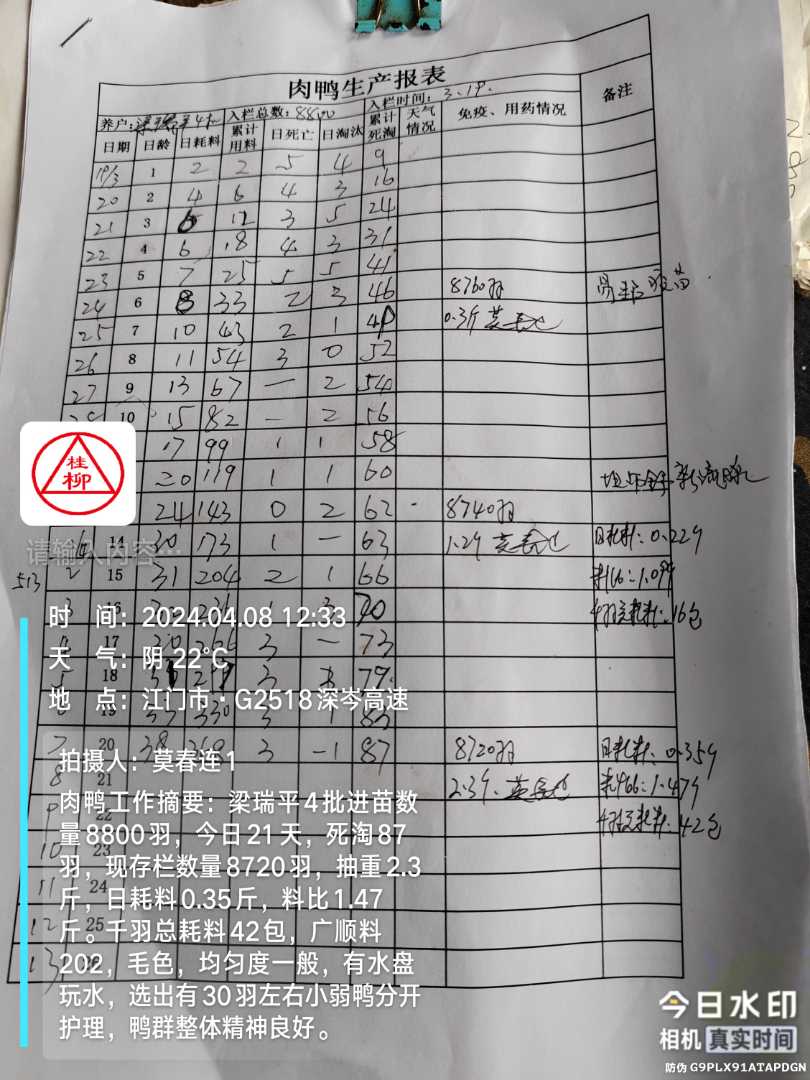 肉鸭生产报表
养户: 入栏总数:8800 入栏时间:3.19. 备注
日期 日龄 日耗料 累计用料 日死亡 日淘汰 累计死淘 天气情况 免疫、用药情况
19/3 1 2 2 5 4 9
20 2 4 6 4 3 16
21 3 6 12 3 5 24
22 4 6 18 4 3 31
23 5 7 25 5 5 41
24 6 8 33 2 3 46 8760羽
25 7 10 43 2 1 49 0.3斤 莫春连
26 8 11 54 3 0 52
27 9 13 67 一 2 54
28 10 15 82 一 2 56
17 99 1 1 58
20 119 1 1 60
24 143 0 2 62 8740羽
14 30 173 1 一 63 1.2斤 莫春连 日耗料:0.22斤
2 15 31 204 2 1 66 料比:1.09斤
3 16 70 千羽总耗料:16包
4 17 30 266 3 一 73
5 18 3 79
6 19 37 330 3 1 83
7 20 38 3 一1 87 8720羽 日耗料:0.35斤
8 21 2.3斤. 莫春连 料比:1.47斤
9 22 千羽总耗料:42包
10 23
11 24
12 25
13
桂柳
请输入内容…
时 间:2024.04.08 12:33
天 气:阴 22℃
地 点:江门市·G2518深岑高速
拍摄人:莫春连1
肉鸭工作摘要:梁瑞平4批进苗数
量8800羽,今日21天,死淘87
羽,现存栏数量8720羽,抽重2.3
斤,日耗料0.35斤,料比1.47
斤。千羽总耗料42包,广顺料
202,毛色,均匀度一般,有水盘
玩水,选出有30羽左右小弱鸭分开
护理,鸭群整体精神良好。
今日水印
相机 真实时间
防伪 G9PLX91ATAPDGN